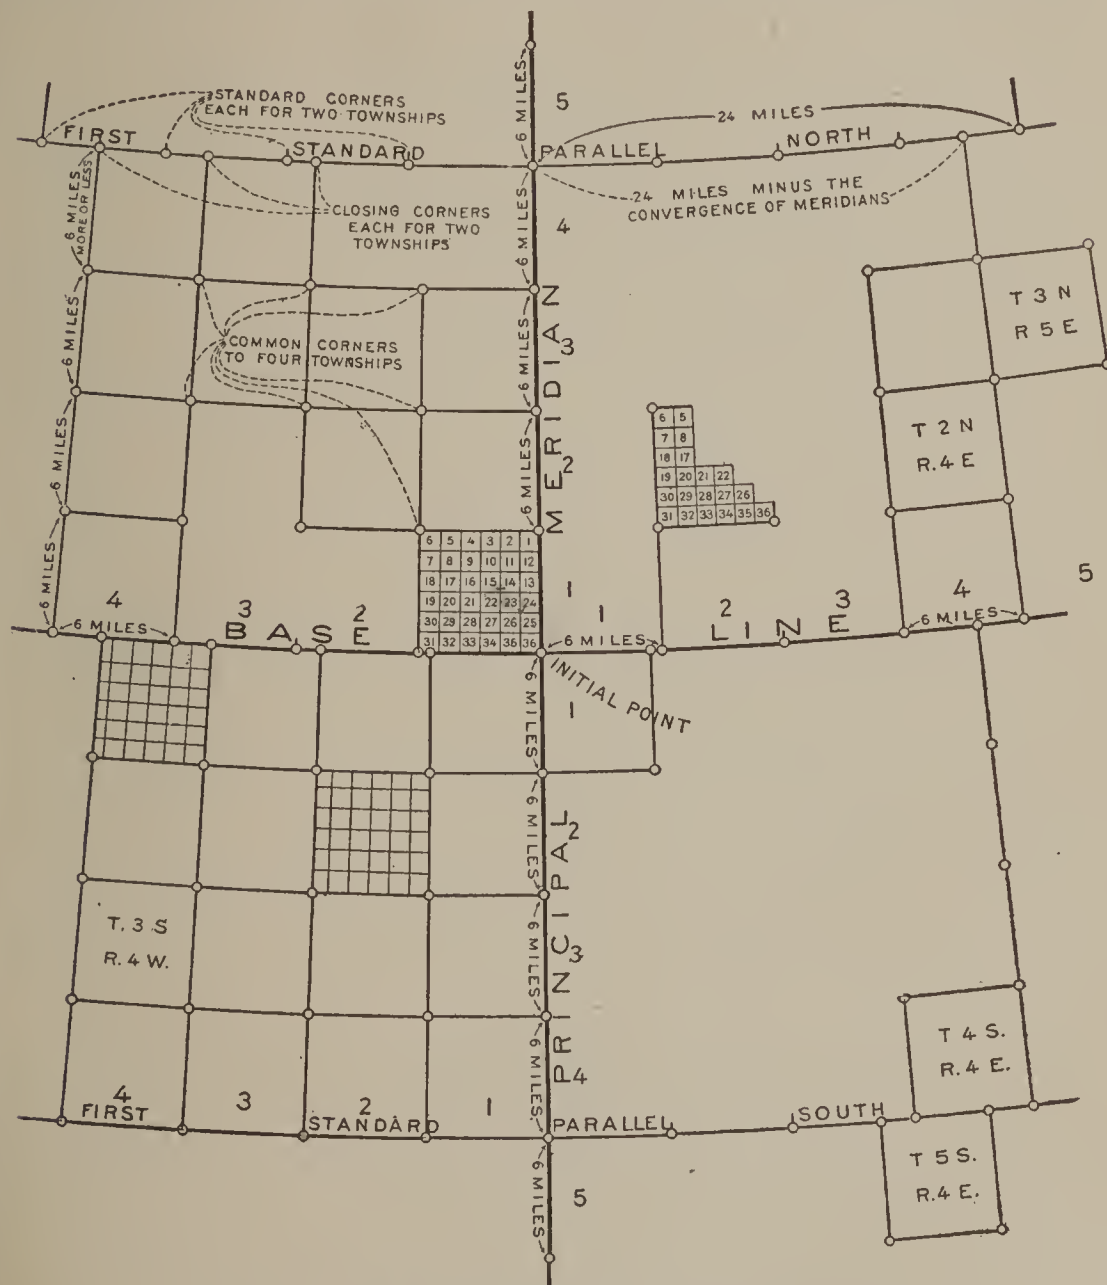 5
6 MILES
STANDARD CORNERS
EACH FOR TWO TOWNSHIPS
24 MILES
FIRST STANDARD PARALLEL NORTH
24 MILES MINUS THE
CONVERGENCE OF MERIDIANS
CLOSING CORNERS
EACH FOR TWO
TOWNSHIPS
6 MILES
MORE OR LESS
6 MILES
4
6 MILES
6 MILES
6 MILES
6 MILES
COMMON CORNERS
TO FOUR TOWNSHIPS
6 MILES
3
6 MILES
2
MERIDIAN
T 3 N
R 5 E
T 2 N
R. 4 E
6 5
7 8
18 17
19 20 21 22
30 29 28 27 26
31 32 33 34 35 36
6 5 4 3 2 1
7 8 9 10 11 12
18 17 16 15 14 13
19 20 21 22 23 24
30 29 28 27 26 25
31 32 33 34 35 36
1
4 3 2 1 2 3 4 5
6 MILES
6 MILES
6 MILES
BASE LINE
INITIAL POINT
6 MILES
1
6 MILES
2
6 MILES
3
6 MILES
4
PRINCIPAL
T. 3 S
R. 4 W.
T 4 S.
R. 4 E.
4 3 2 1
FIRST STANDARD PARALLEL SOUTH
T 5 S.
R. 4 E.
6 MILES
5